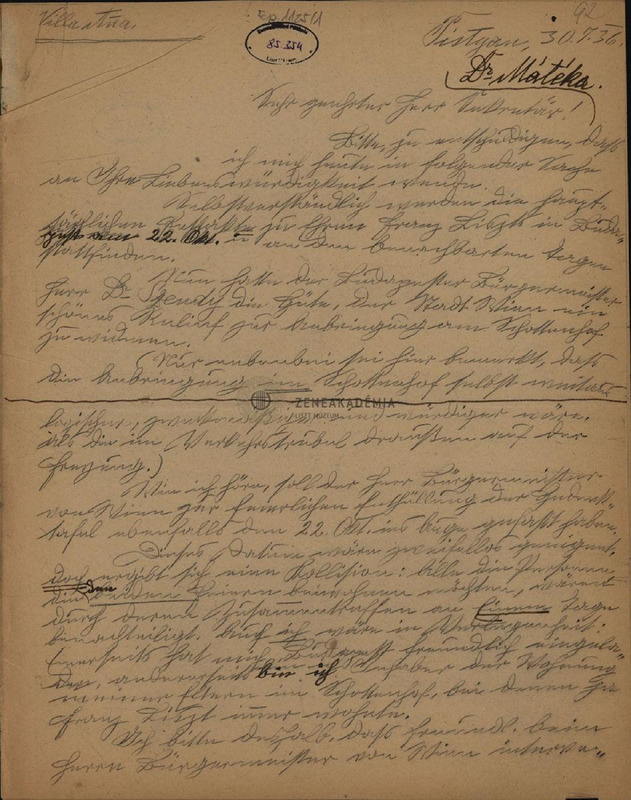 Villa Etna.
Ep 1175/1
92
85.354
Pistyan, 30.7.36.
Dr. Matéka.
Sehr geehrter Herr Sekretär!
Bitte, zu entschuldigen, dass
ich mich heute in folgender Sache
an Ihre Liebenswürdigkeit wende.
Selbstverständlich werden die haupt-
sächlichen Festakte zu Ehren Franz Liszts in Buda-
22. Okt. u an den benachbarten Tagen
stattfinden.
Nun hatte der Budapester Bürgermeister
Herr Dr. Szendy die Güte, der Stadt Wien ein
schönes Relief zur Anbringung am Schottenhof
zu widmen.
Nur nebenbei sei hier bemerkt, dass
die Anbringung im Schottenhof selbst weitaus
ZENEAKADÉMIA
LISZT MÚZEUM
logischer, und würdiger wäre,
als die im Verkehrstrubel draußen auf der
Freyung.)
Wie ich höre, soll der Herr Bürgermeister
von Wien zur feierlichen Enthüllung der Gedenk-
tafel ebenfalls den 22. Okt. ins Auge gefaßt haben.
Dieses Datum wäre zweifellos geeignet,
doch ergibt sich eine Kollision: alle die Personen,
die den Feiern beiwohnen möchten, wären
durch deren Zusammentreffen an Einem Tage
benachteiligt. Auch ich wäre in Verlegenheit:
Einerseits hat mich Budapest freundlich eingela-
den, andererseits bin ich Inhaber der Wohnung
meiner Eltern im Schottenhof, bei denen
Franz Liszt immer wohnte.
Ich bitte deshalb, dass freundl. beim
Herrn Bürgermeister von Wien interve-